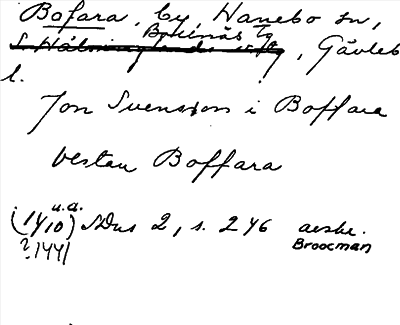 Bofara, by, Hanebo sn,
Bollnäs tg
S. Hälsinglands , Gävleb
l.
Jon Svensson i Boffara
vestan Boffara
u.a.
(14/10) SDns 2, s. 246 aeske.
?1441 Broocman